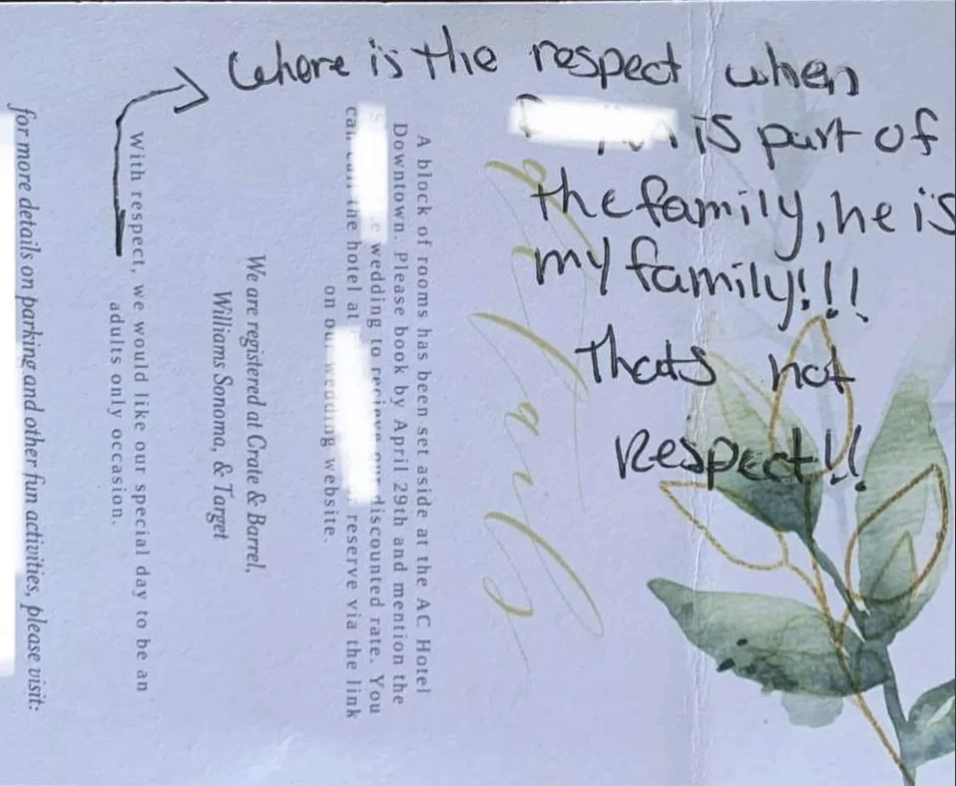 Where is the respect when
is part of
the family, he is
my family!!!
Thats not
Respect!!
Details
A block of rooms has been set aside at the AC Hotel
Downtown. Please book by April 29th and mention the
wedding to recieve our discounted rate. You
can call the hotel at reserve via the link
on our wedding website.
We are registered at Crate & Barrel,
Williams Sonoma, & Target
With respect, we would like our special day to be an
adults only occasion.
for more details on parking and other fun activities, please visit: